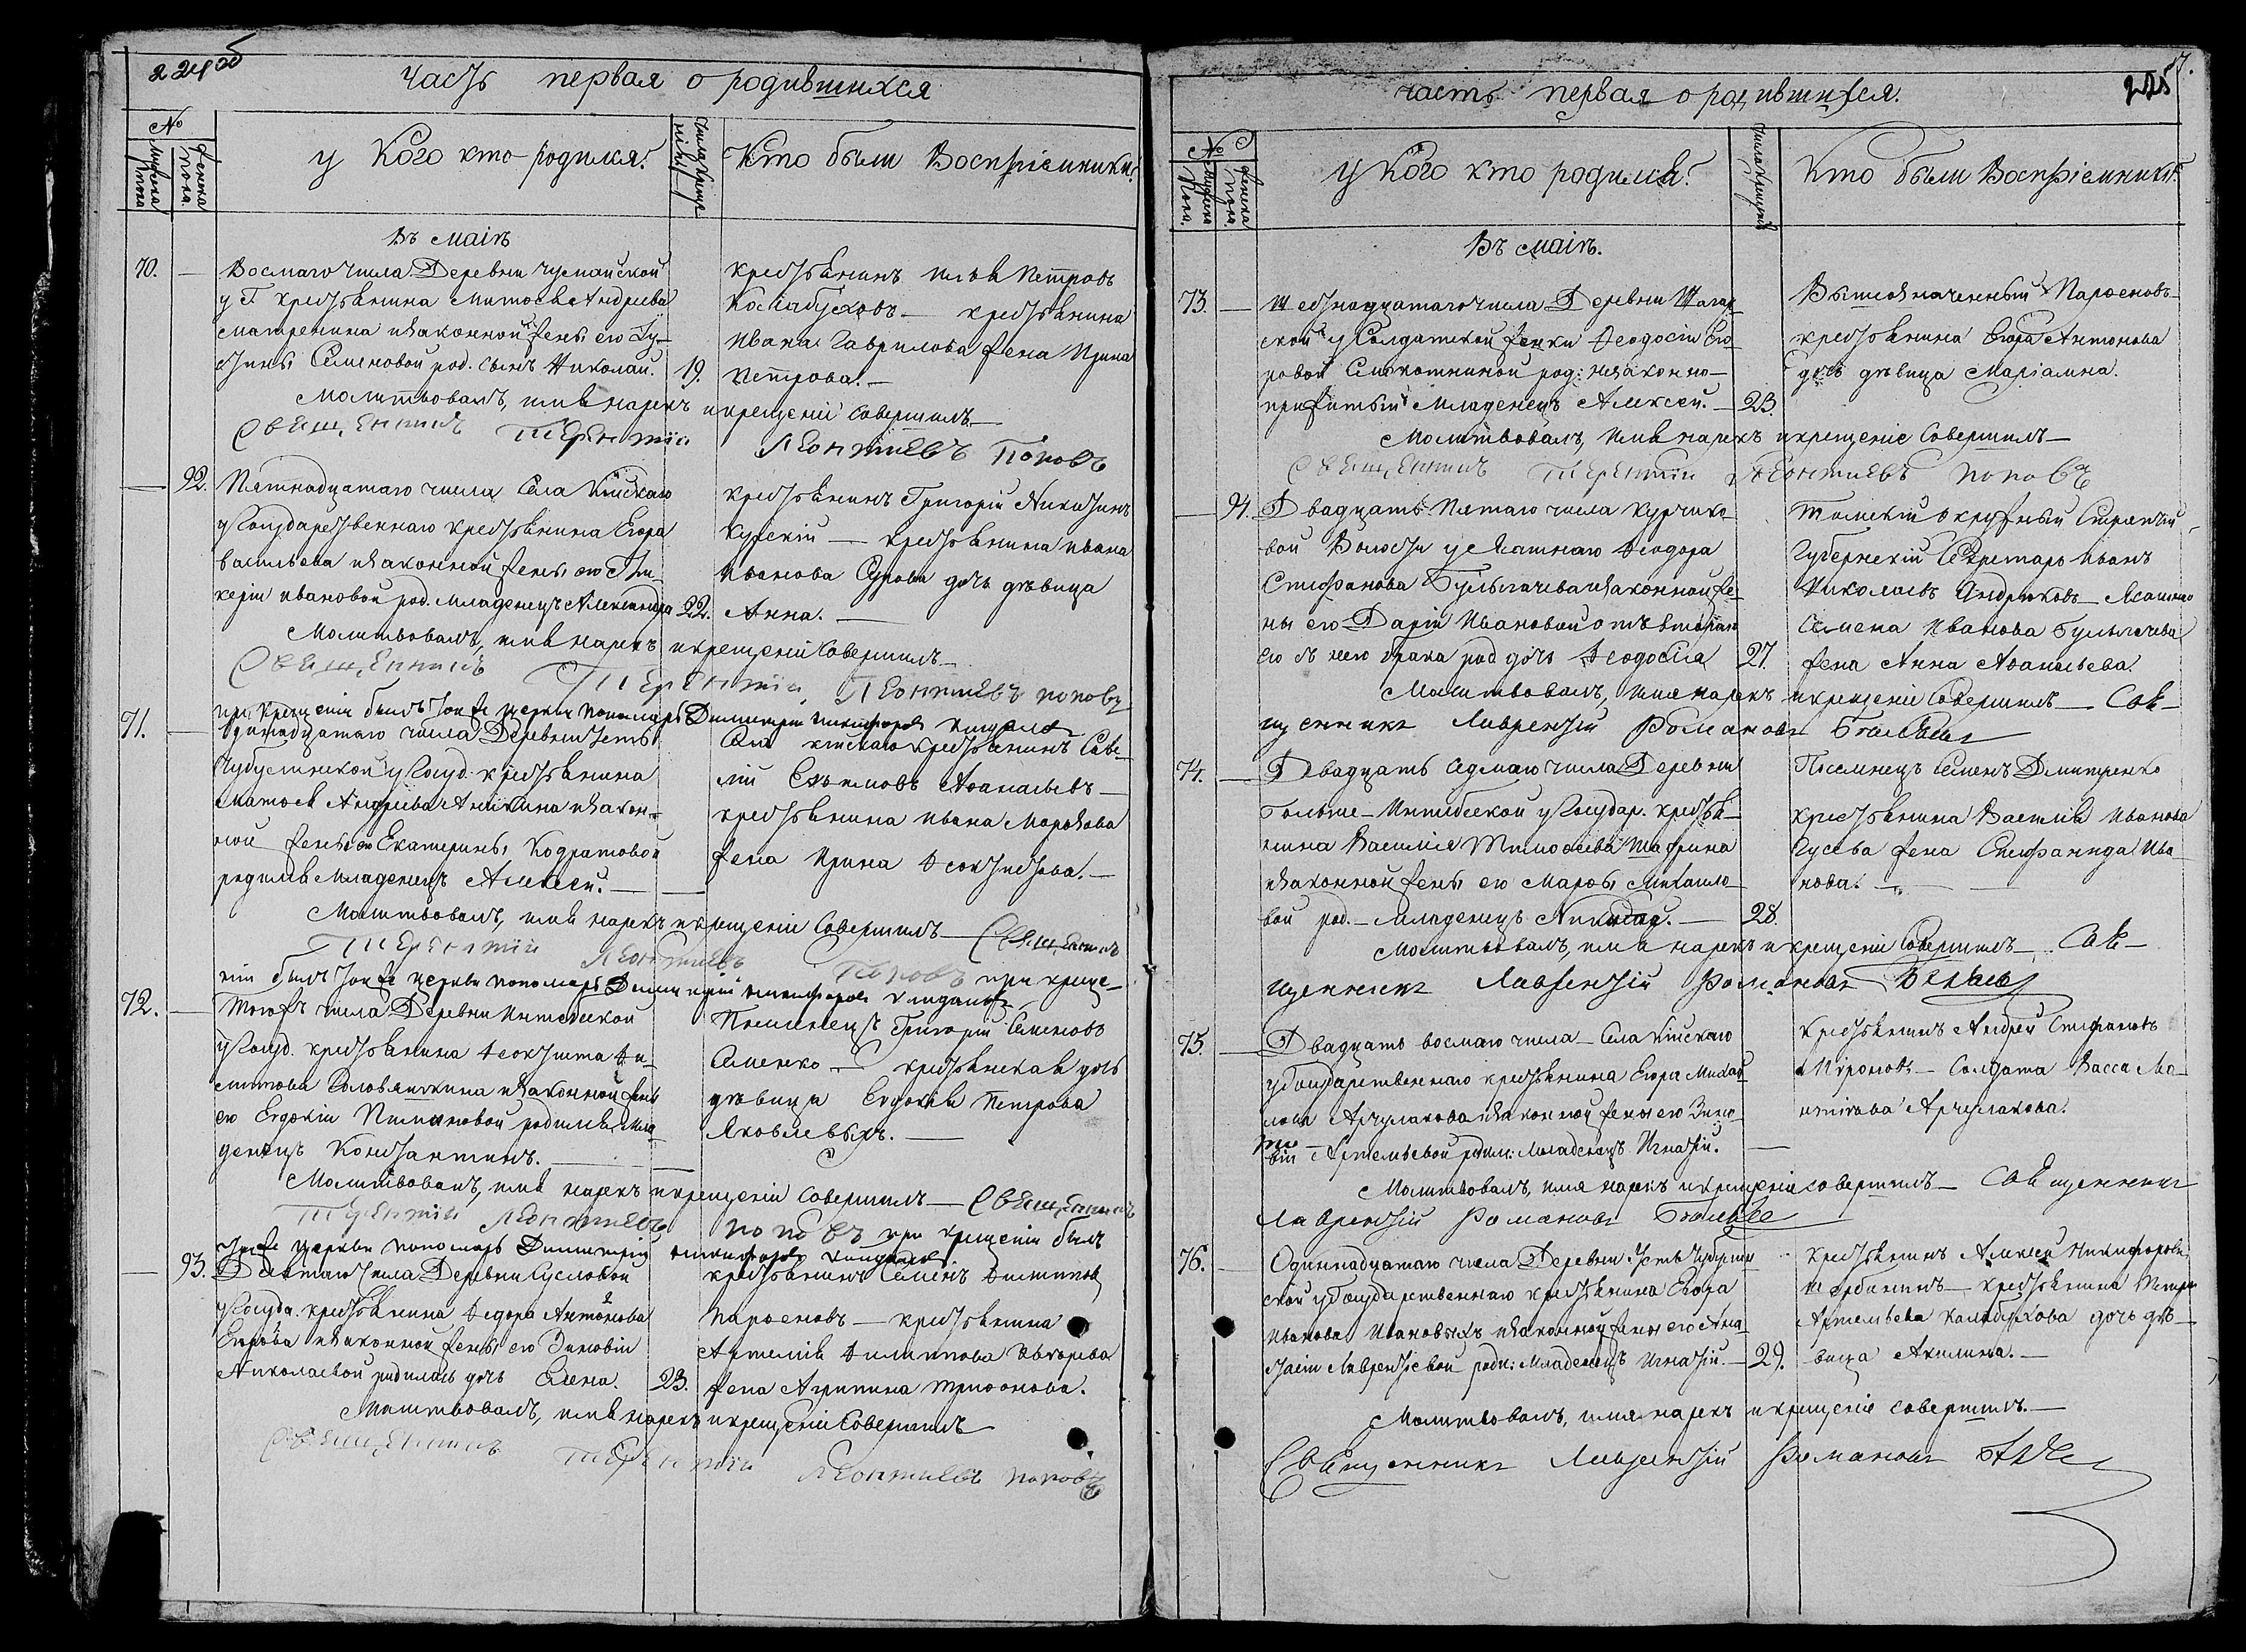 224 об
часть первая о родившихся
№
Мужеска пола
Женска пола.
у Кого кто родился?
Числа крещенія
Кто были Воспріемники?
Въ маіѣ
70. — Восмаго числа Деревни Чумайской
у Г. крестьянина Матѳея Андреева
Матренина и законной жены его Іу-
стины Семеновой род. сынъ Николай. 19.
крестьянинъ Илья Петровъ
Коламбуховъ — крестьянина
Ивана Гаврилова жена Ирина
Петрова. —
Молитвовалъ, имя нарекъ и крещеніе совершилъ —
Священникъ Терентій Леонтиевъ Поповъ
— 92. Пятнадцатаго числа Села Кійскаго
у Государственнаго крестьянина Егора
Васильева и законной жены его Гли-
керіи Ивановой род. младенецъ Александра 22.
крестьянинъ Григорій Никитинъ
Курскій — крестьянина Ивана
Иванова Сурова дочь дѣвица
Анна. —
Молитвовалъ, имя нарекъ и крещеніе совершилъ —
Священникъ Терентій Леонтиевъ Поповъ
при крещеніи былъ той же церкви пономарь Димитрій Никифоровъ
71. — Одинадцатаго числа Деревни Усть
Чебулинской у Госуд. крестьянина
Матѳея Андреева Аникина и закон-
ной жены его Екатерины Кодратовой
родился младенецъ Алексей. —
Села Кійскаго крестьянинъ Саве-
лій Евѳимовъ Аѳанасьевъ —
крестьянина Ивана Морозова
жена Ирина Ѳеоктистова. —
Молитвовалъ, имя нарекъ и крещеніе совершилъ — Священникъ
Терентій Леонтиевъ Поповъ при креще-
ніи былъ той же церкви пономарь Димитрій Никифоровъ
72. — Тогожъ числа Деревни Интебеской
у Госуд. крестьянина Ѳеоктиста Ѳи-
липпова Соловянкина и законной жены
его Евдокіи Пимановой родился мла-
денецъ Константинъ. —
Поселенецъ Григорій Семеновъ
Семенко — крестьянская дочь
дѣвица Евдокія Петрова
Яковлевыхъ. —
Молитвовалъ, имя нарекъ и крещеніе совершилъ — Священникъ
Терентій Леонтиевъ Поповъ при крещеніи былъ
той же церкви пономарь Димитрій Никифоровъ
— 93. Девятаго числа Деревни Сусловой
у Госуда. крестьянина Ѳедора Антонова
и законной жены его Зиновіи
Николаевой родилась дочь Елена. 23.
крестьянинъ Семенъ Филиповъ
Парѳеновъ — крестьянина
Артемія Филиппова
жена Агрипина Триѳонова.
Молитвовалъ, имя нарекъ и крещеніе совершилъ
Священникъ Терентій Леонтиевъ Поповъ
225
часть первая о родившихся.
№
Мужеска Пола.
Женска пола.
у Кого кто родился?
Числа крещенія
Кто были Воспріемники?
Въ маіѣ.
73. — Шестнадцатаго числа Деревни Шагар-
ской у Солдатской женки Ѳеодосіи Его-
ровой Смокотниной род: незаконно-
прижитый младенецъ Алексей. — 23.
Вышеозначенный Парѳеновъ —
крестьянина Егора Антонова
дочь дѣвица Маріамна.
Молитвовалъ, имя нарекъ и крещеніе совершилъ —
Священникъ Терентій Леонтиевъ Поповъ
— 94. Двадцать Пятаго числа Курчико-
вой Волости у Ясашнаго Ѳеодора
Стефанова Булыгачева и законной же-
ны его Даріи Ивановой отъ втораго
его съ нею брака род дочь Ѳеодосія 27.
Томскій окружный Стряпчій
Губернскій Секретарь Иванъ
Николаевъ Андрюковъ — Ясашнаго
Семена Иванова Булыгачева
жена Анна Аѳанасьева.
Молитвовалъ, имя нарекъ и крещеніе совершилъ — Свя-
щенникъ Лаврентій Романовъ
74. — Двадцать Седмаго числа Деревни
Больше-Интебеской у Государ. крестья-
нина Василія Тимоѳеева Шафрина
и законной жены его Марѳы Михайло-
вой род. — младенецъ Никита. — 28.
Поселенецъ Семенъ Дмитренко
крестьянина Василія Иванова
Гусева жена Стефанида Ива-
нова. —
Молитвовалъ, имя нарекъ и крещеніе совершилъ — Свя-
щенникъ Лаврентій Романовъ
75. — Двадцать восмаго числа — Села Кійскаго
у Государственнаго крестьянина Егора Михай-
лова Арчулакова и законной жены его Зино-
віи Артемьевой родил: младенецъ Игнатій. —
крестьянинъ Андрей Стефановъ
Мироновъ — Солдата Васса Ма-
Арчулакова.
Молитвовалъ, имя нарекъ и крещеніе совершилъ — Священникъ
Лаврентій Романовъ
76. — Одиннадцатаго числа Деревни Усть Чебулин-
ской у Государственнаго крестьянина Егора
Иванова Ивановыхъ и законной жены его Ана-
стасіи Лаврентьевой роди: младенецъ Игнатій. — 29.
крестьянинъ Алексей Никифоровъ
Щербининъ — крестьянина Петра
Артемьева Каламбухова дочь дѣ-
вица Акилина. —
Молитвовалъ, имя нарекъ и крещеніе совершилъ. —
Священникъ Лаврентій Романовъ